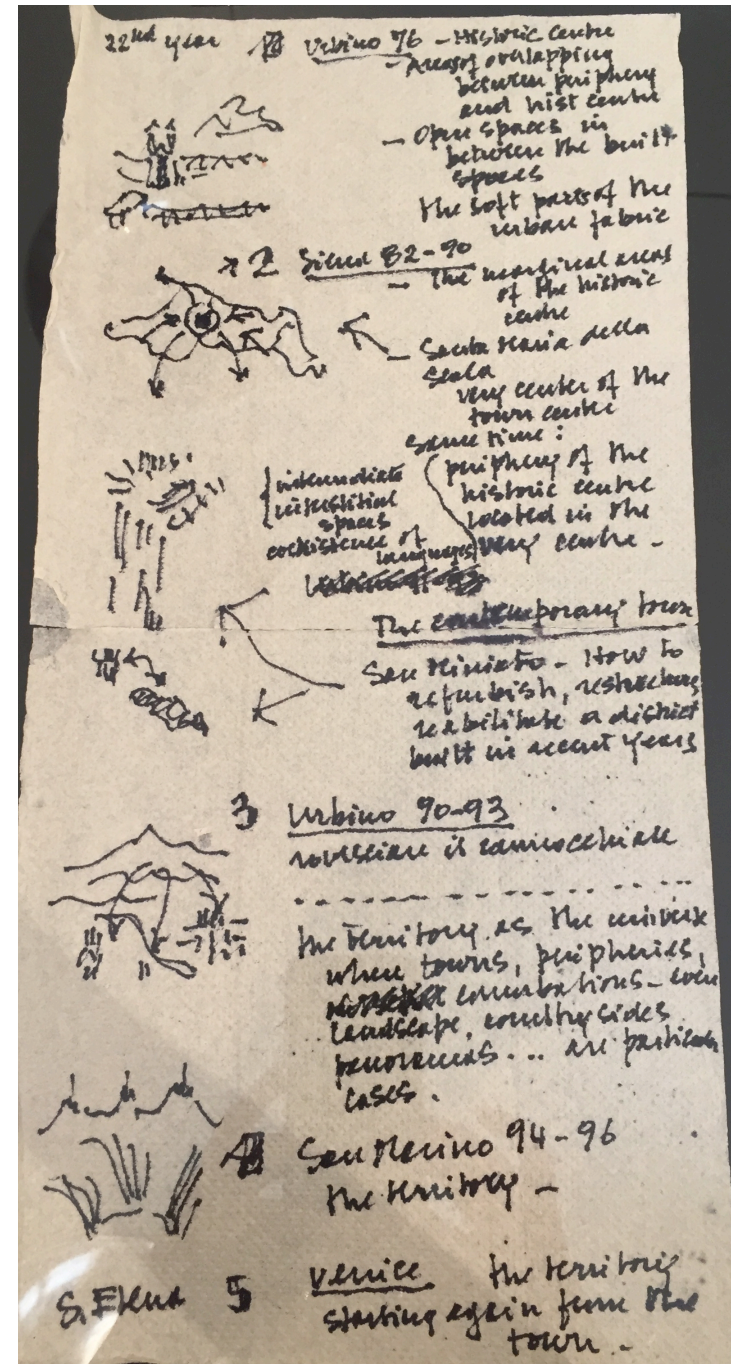 22nd year 1 Urbino 76 - Historic centre
- Areas of overlapping
between periphery
and hist centre
- Open spaces in
between the built
spaces
the soft parts of the
urban fabric
2 Siena 82-90
- The marginal areas
of the historic
centre
- Santa Maria della
Scala
very center of the
town centre
same time :
periphery of the
historic centre
located in the
very centre -
intermediate
interstitial
spaces
coexistence of
languages
The contemporary town
San Miniato - How to
refurbish, restructure
reabilitate a district
built in recent years
3 Urbino 90-93
rovesciare il cannocchiale
the territory as the universe
where towns, peripheries,
conurbations - even
landscape, countrysides
panoramas ... are particular
cases.
4 San Marino 94-96
the territory -
S. Elena 5 Venice the territory
starting again from the
town -